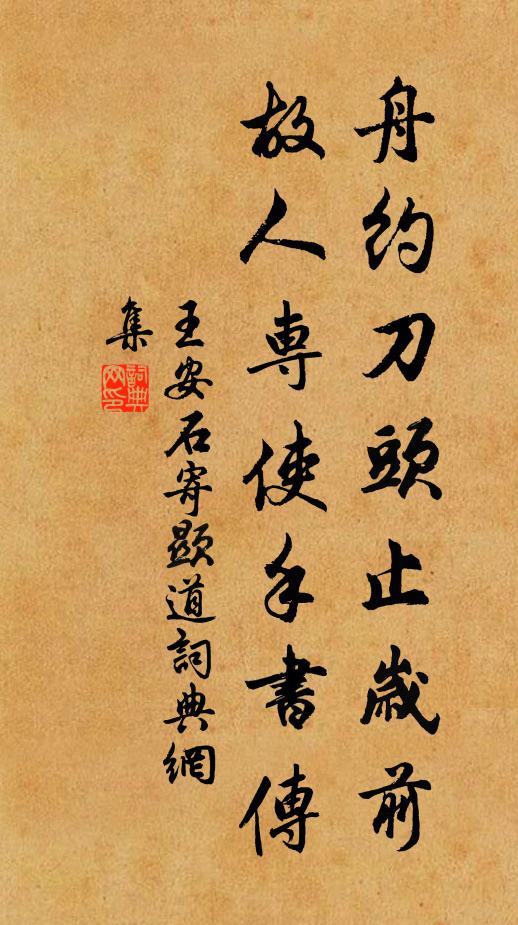 舟約刀頭止歲前
故人專使手書傳
王安石寄顯道詞典網
集
詞典網印